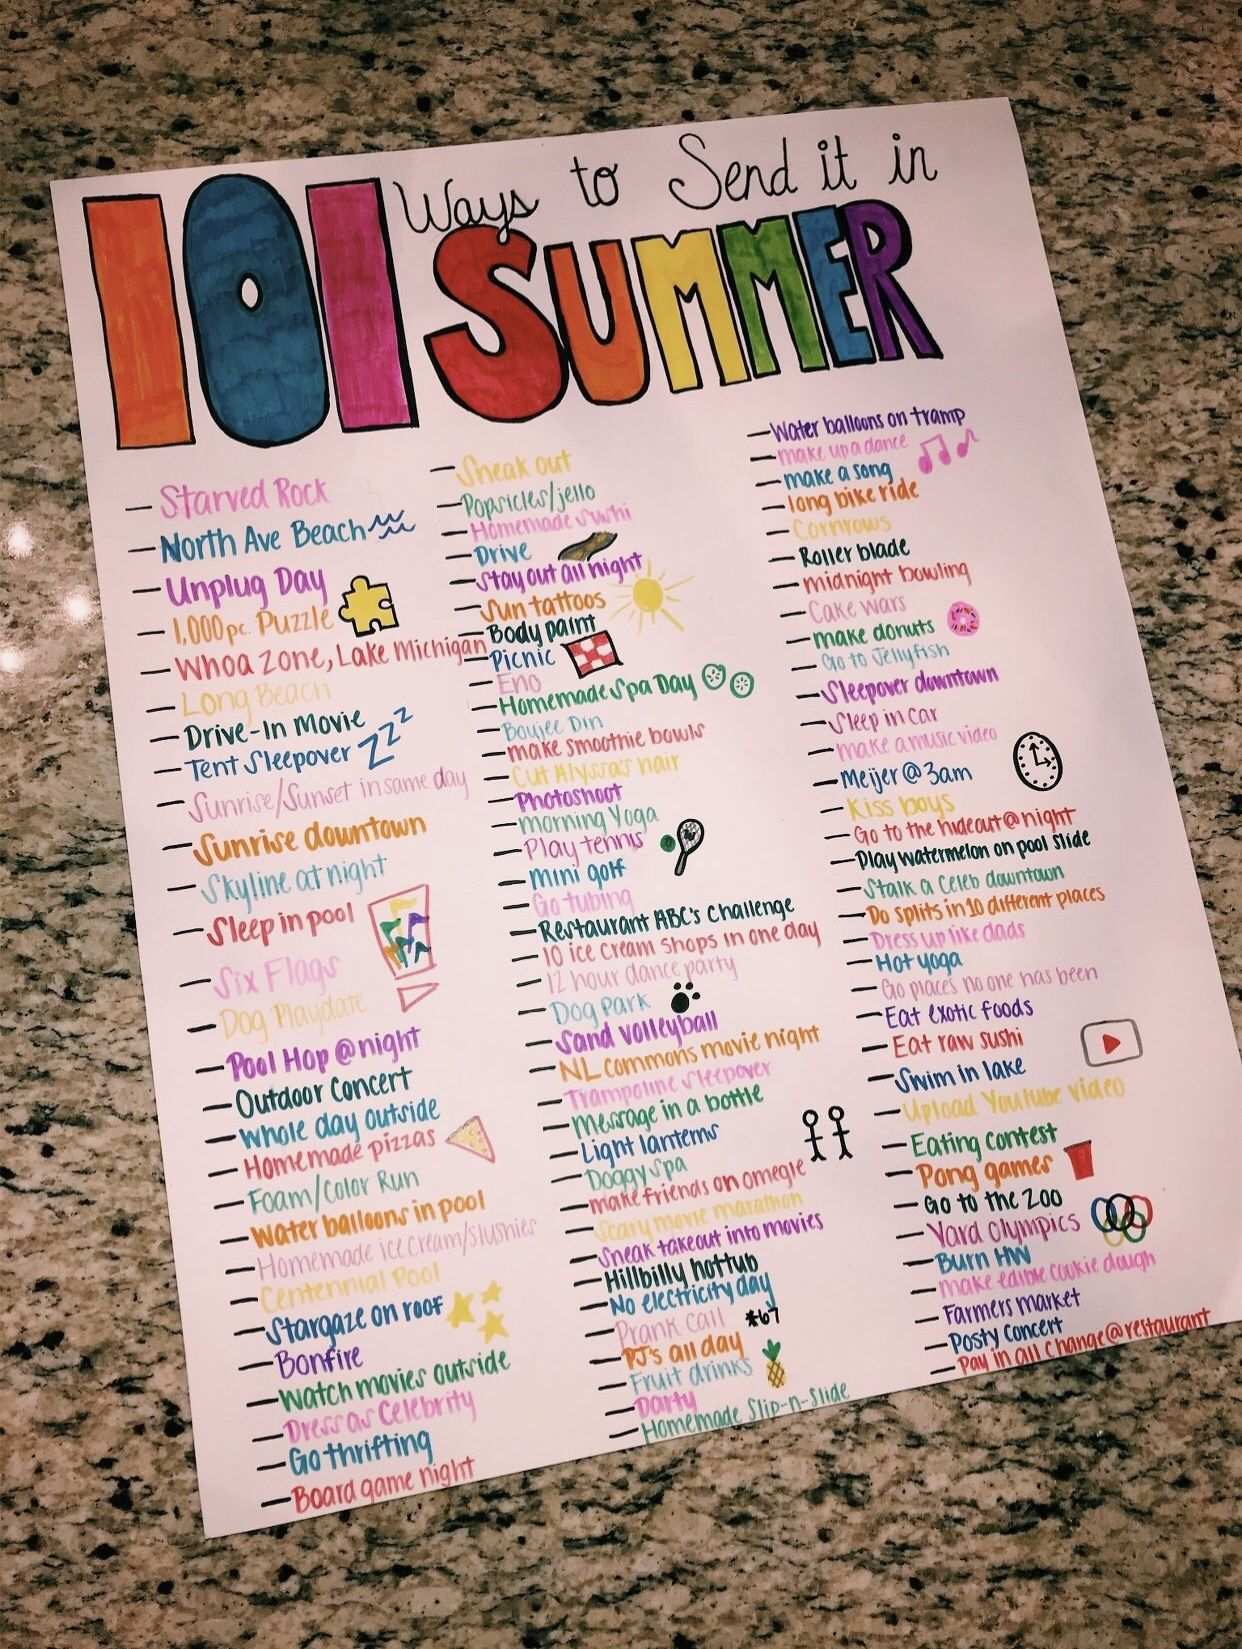 101 Ways to Send it in
SUMMER
Starved Rock
North Ave Beach
Unplug Day
1,000 pc. Puzzle
Whoa Zone, Lake Michigan
Long Beach
Drive-In Movie
Tent Sleepover ZZZ
Sunrise/Sunset in same day
Sunrise downtown
Skyline at night
Sleep in pool
Six Flags
Dog Playdate
Pool Hop @ night
Outdoor Concert
Whole day outside
Homemade pizzas
Foam/Color Run
Water balloons in pool
Homemade ice cream/slushies
Centennial Pool
Stargaze on roof
Bonfire
Watch movies outside
Dress as Celebrity
Go thrifting
Board game night
Sneak out
Popsicles/jello
Homemade sushi
Drive
Stay out all night
Sun tattoos
Body paint
Picnic
Eno
Homemade Spa Day
Boujee Din
make smoothie bowls
Cut Alyssa's hair
Photoshoot
morning Yoga
Play tennis
mini golf
Go tubing
Restaurant ABC's Challenge
10 ice cream shops in one day
12 hour dance party
Dog Park
Sand volleyball
NL Commons movie night
Trampoline Sleepover
Message in a bottle
Light lanterns
Doggy spa
make friends on omegle
Scary movie marathon
Sneak takeout into movies
Hillbilly hottub
No electricity day
Prank Call *67
PJ's all day
Fruit drinks
Darty
Homemade Slip-n-Slide
Water balloons on tramp
make up a dance
make a song
long bike ride
Cornrows
Roller blade
midnight bowling
Cake wars
make donuts
Go to Jellyfish
Sleepover downtown
Sleep in car
make a music video
Meijer @ 3am
Kiss boys
Go to the hideout @ night
Play watermelon on pool slide
Stalk a Celeb downtown
Do splits in 10 different places
Dress up like dads
Hot yoga
Go places no one has been
Eat exotic foods
Eat raw sushi
Swim in lake
Upload Youtube video
Eating contest
Pong games
Go to the Zoo
Yard Olympics
Burn HW
make edible cookie dough
Farmers market
Posty Concert
Pay in all change @ restaurant